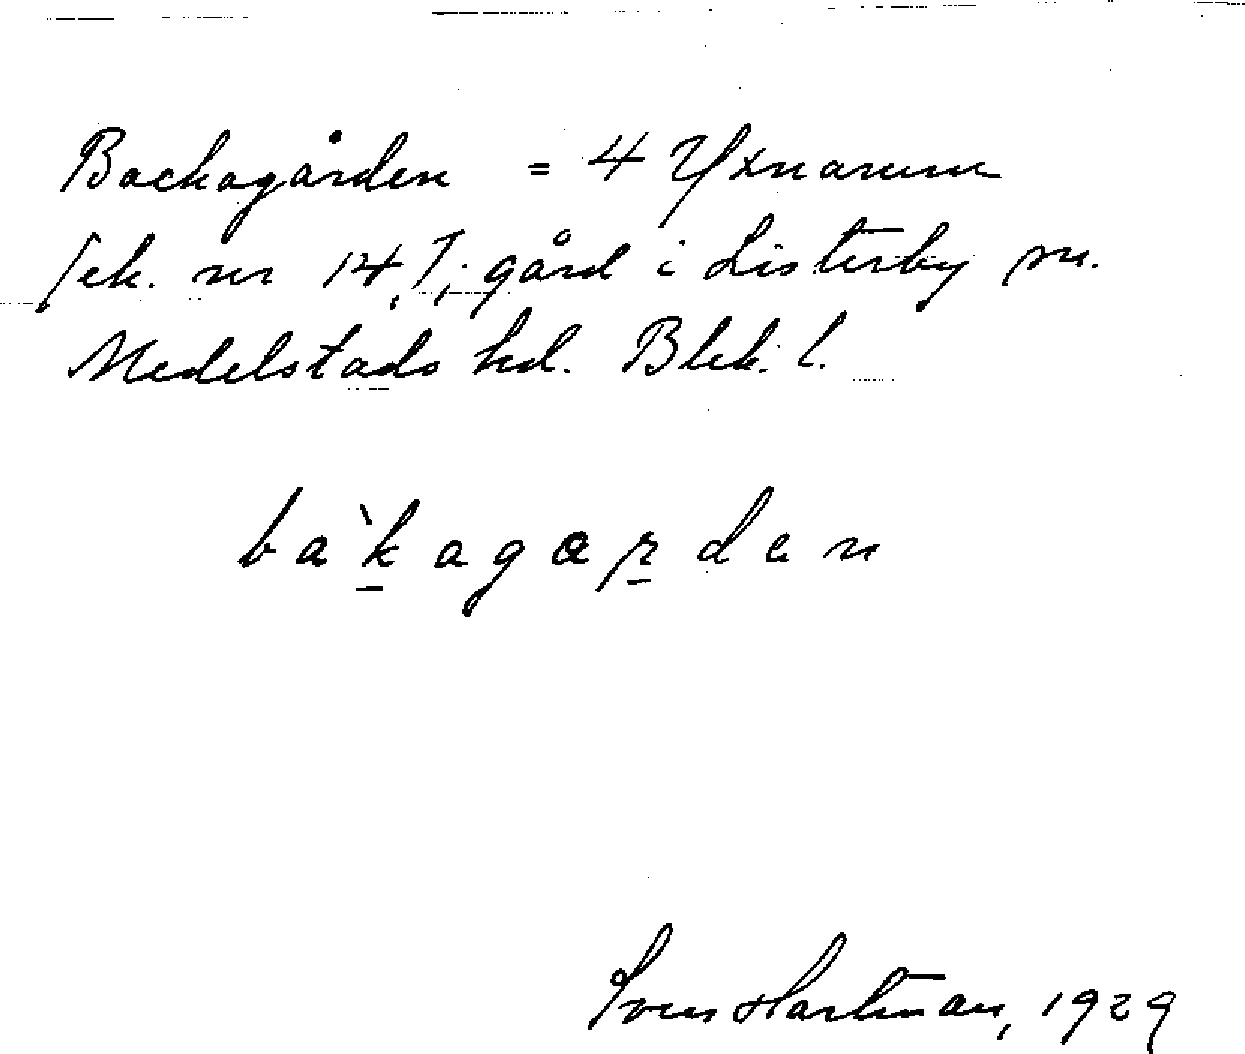 Backagården = 4 Yxnarum
/ek. nr 14, T; gård i Listerby sn.
Medelstads hd. Blek. l.
bak̠̀agar̠den
Sven Hartman, 1929